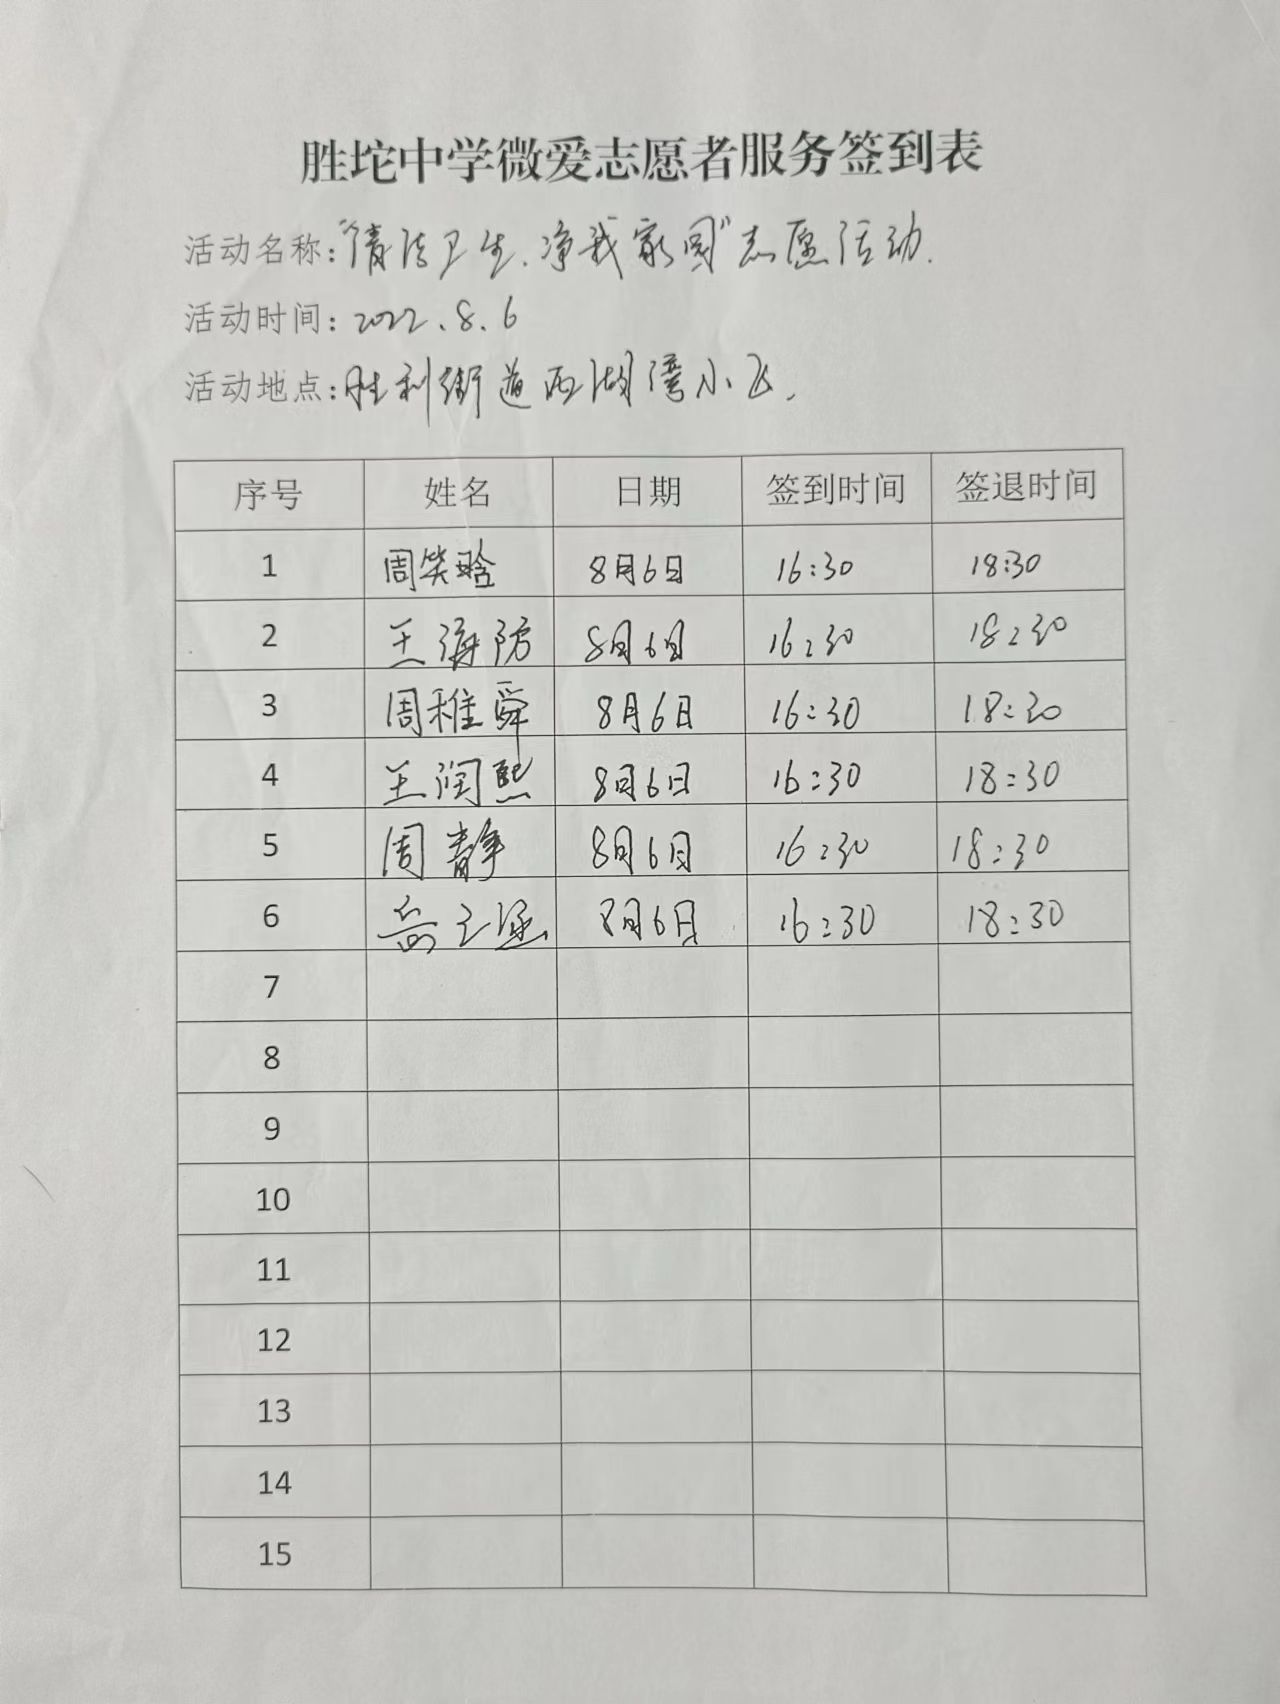 胜坨中学微爱志愿者服务签到表
活动名称:“清洁卫生.净我家园”志愿活动.
活动时间:2022.8.6
活动地点:胜利街道西湖湾小区.
序号 姓名 日期 签到时间 签退时间
1 周笑晗 8月6日 16:30 18:30
2 王海防 8月6日 16:30 18:30
3 周稚舜 8月6日 16:30 18:30
4 王润熙 8月6日 16:30 18:30
5 周静 8月6日 16:30 18:30
6 8月6日 16:30 18:30
7
8
9
10
11
12
13
14
15